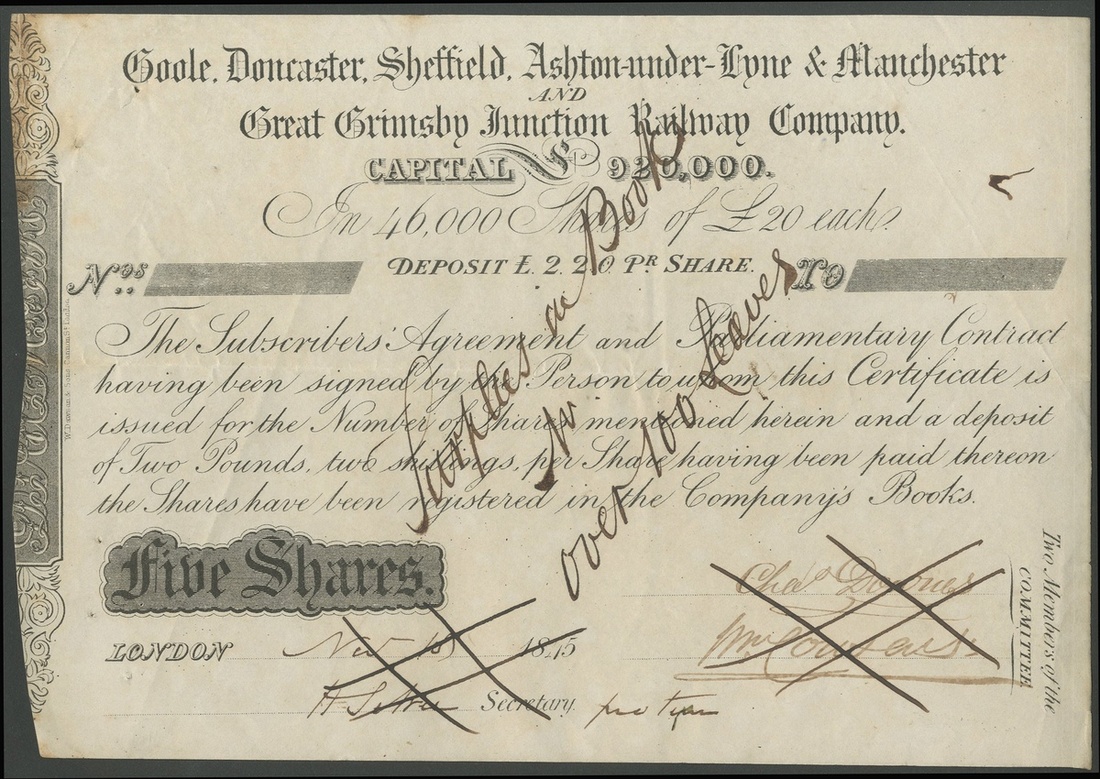 Goole, Doncaster, Sheffield, Ashton-under-Lyne & Manchester
AND
Great Grimsby Junction Railway Company.
CAPITAL £ 920,000.
In 46,000 Shares of £20 each.
DEPOSIT £. 2. 2. 0. PR SHARE.
Nos TO
The Subscribers' Agreement and Parliamentary Contract
having been signed by the Person to whom this Certificate is
issued for the Number of Shares mentioned herein and a deposit
of Two Pounds, two shillings, per Share having been paid thereon
the Shares have been registered in the Company's Books.
Five Shares.
LONDON Nov 1845
Secretary pro tem
Chas
Wm
Two Members of the
COMMITTEE
in Book
over 100 Leaves